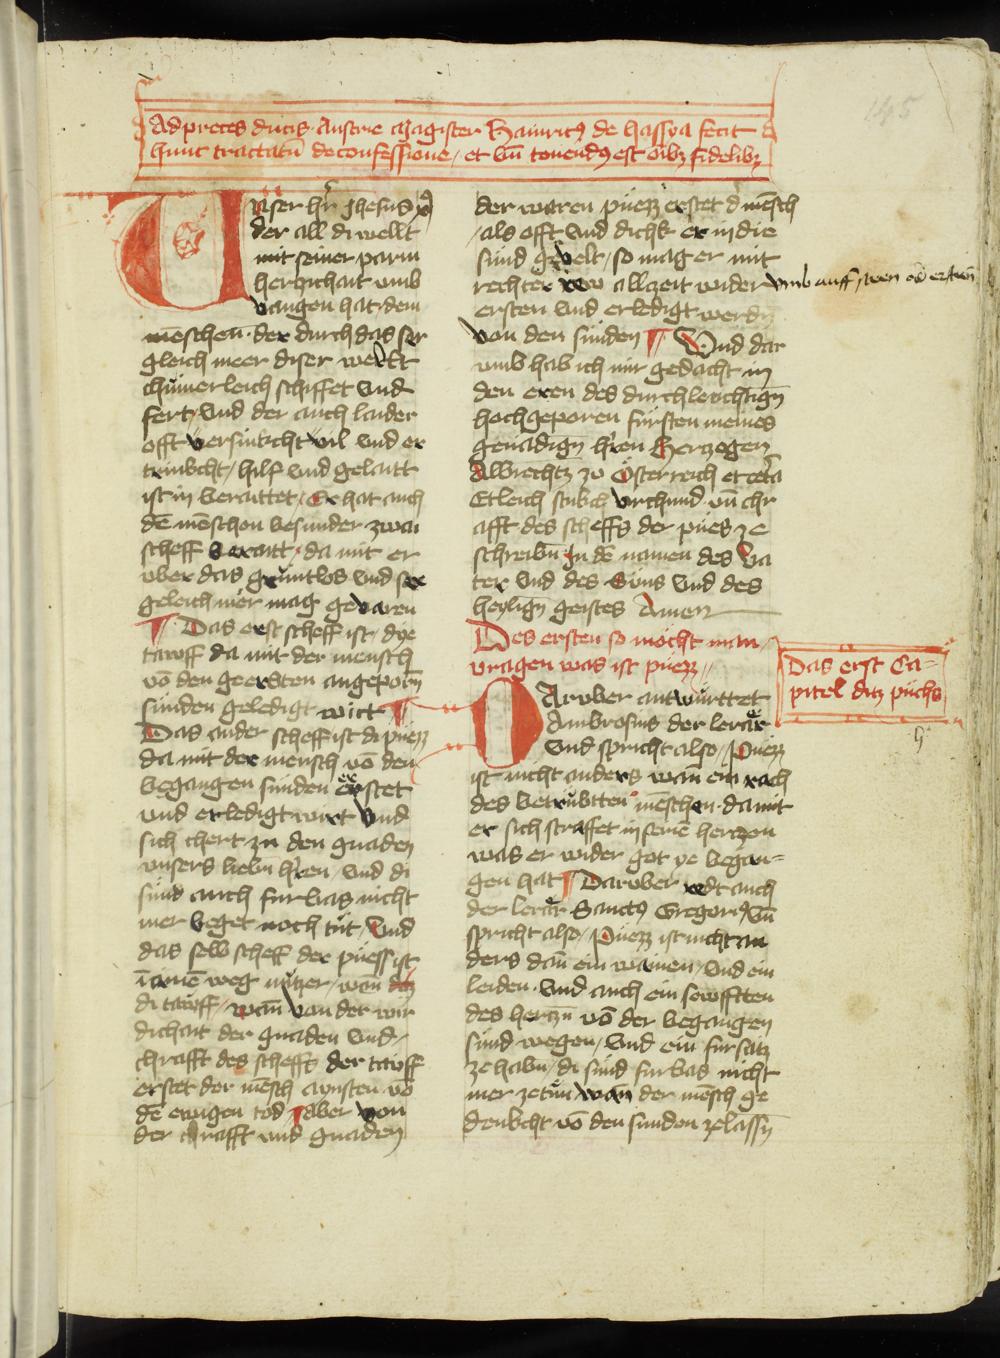 Ad preces ducis Austrie Magister Hainricus de hassya fecit
hunc tractatū de confessione / et bn̄ tenend9 est oīb9 fidelib9
Unser hr̄ Jhesus xp̄s
der all di wellt
mit seiner parm
herczichait umb
vangen hat dem
mēschen · der durch das ser
gleich meer diser weltt
chūmerleich schiffet vnd
fert / vnd der auch laider
offt versinkcht vil vnd er
trinkcht / hilf vnd gelaitt
ist in beraittet / Er hat auch
dē mēschen besunder zwai
scheff beraitt / da mit er
vber das grūntlos vnd ser
geleich mer mag gevaren
¶ Das erst scheff ist / dye
tawff da mit der mensch
vō den geerbten angeporn̄
sünden geledigt wirt ¶
Das ander scheff ist di puezz
da mit der mensch vō den
begangen sünden erstet
vnd erledigt wirt vnd
sich chert zu den gnaden
vnsers liebn̄ hr̄en / vnd di
sünd auch furbas nicht
mer beget noch tüt / Vnd
das selb scheff der puess ist
in ainē weg nützer / wan̄
di tawff / wan̄ von der wir
dichait der gnaden vnd /
chrafft des scheffs der tawff
erstet der mēsch aynsten vō
dē ewigen tod ¶ aber von
der chrafft vnd gnaden
der waren püezz erstet d mēsch
/ als offt vnd dichk er in die
sünd gevelt / so mag er mit
rechter rew allzeit wider
vmb auff sten
ersten vnd erledigt werdn̄
von den sünden ¶ Vnd dar
vmb hab ich mir gedacht in
den eren des durchleuchtign̄
hochgeporen fürsten meines
genadign̄ hr̄en Herczogen
Albrechtz zu Österreich et cetā
Etleich stukch vrchund vn̄ chr
afft des scheffs der pües ze
schreibn̄ In dē namen des Va
ter vnd des Suns vnd des
heylign̄ geistes Amen
Des ersten so möcht man
vragen was ist püezz
Das erst Ca=
pitel ditz püchs
Darüber antwürttet
Ambrosius der lerer
vnd spricht also / Püezz
ist nicht anders wan̄ ein rach
des betrübtten mēschen · da mit
er sich straffet in seinē herczen
was er wider got ye began=
gen hat ¶ Darüber redt auch
der lerer Sanct9 Gregori9 vn̄
spricht also / Püezz ist nicht an
ders dan̄ ein wainen / vnd ein
leiden · vnd auch ein sewfftten
des herczn̄ vō der begangen
sünd wegen / vnd ein fürsatz
ze habn̄ / di sünd furbas nicht
mer ze tün wan̄ der mēsch ge
denkcht vō den sünden ze lassn̄